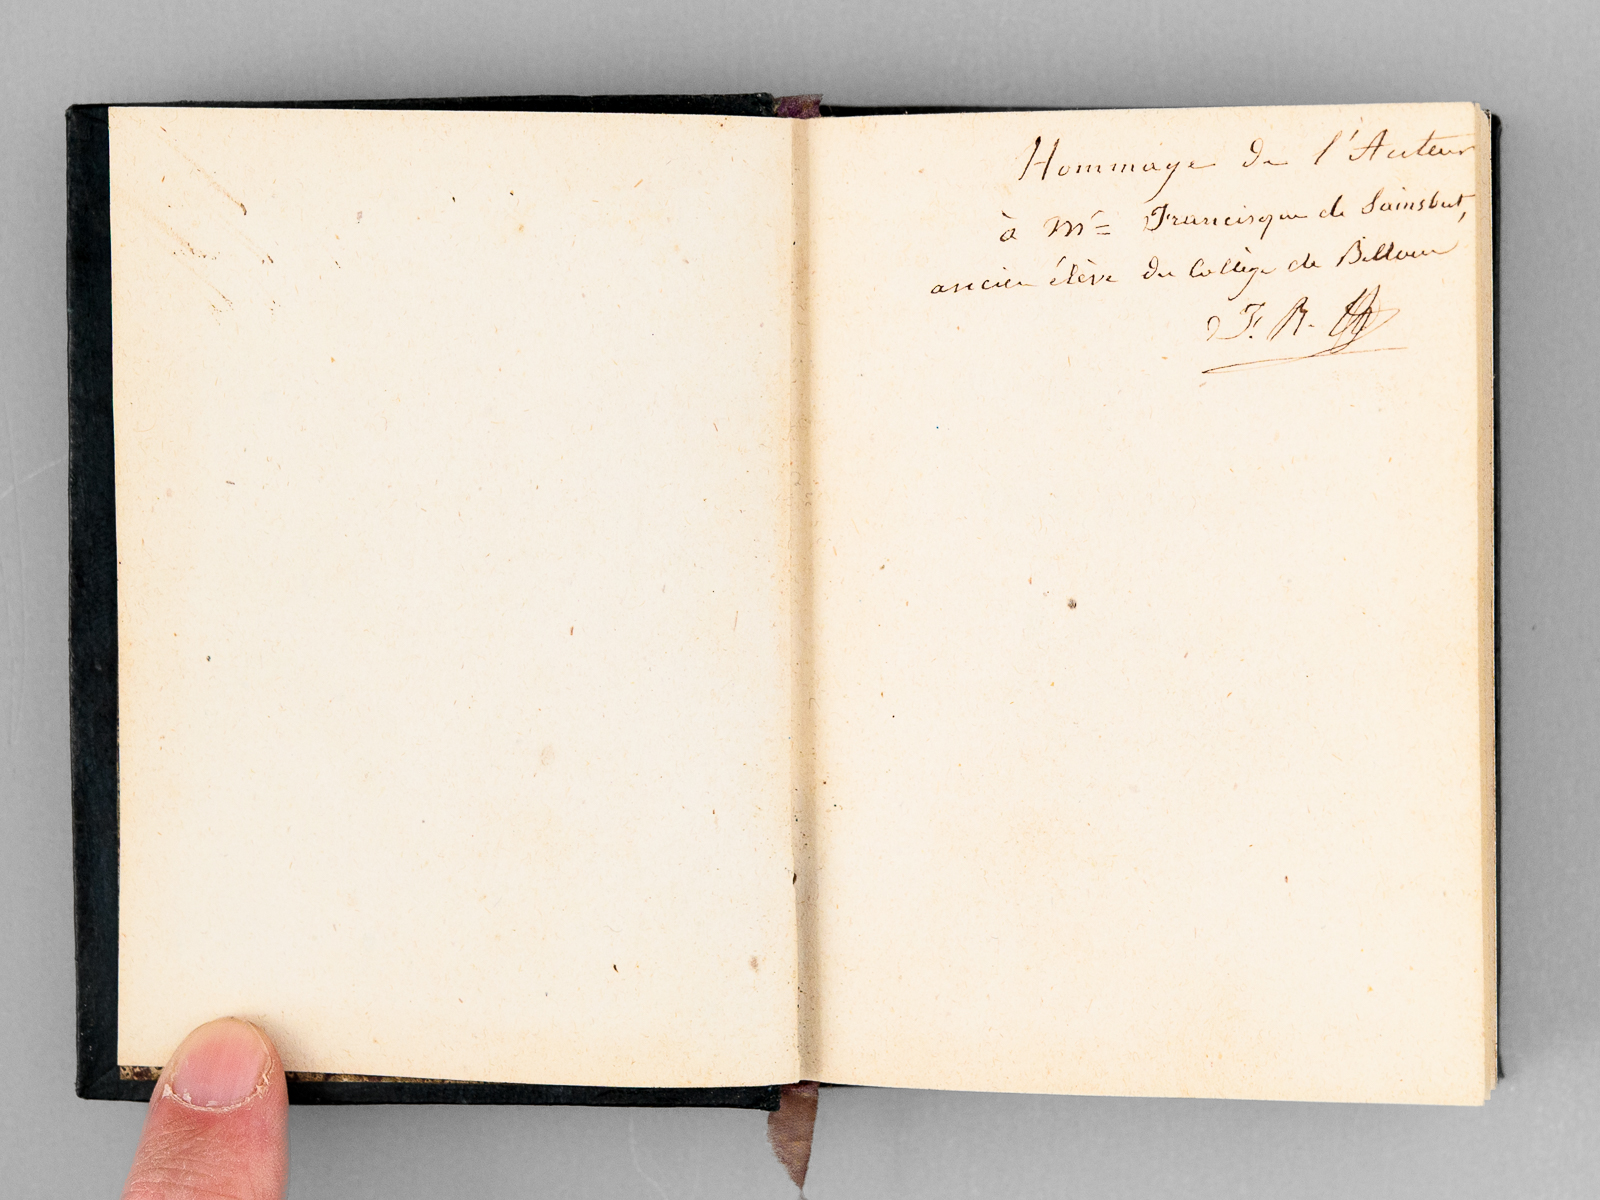 Hommage de l'Auteur
à Mr Francisque de Sainsbut,
ancien élève du Collège de Billom
F. R.